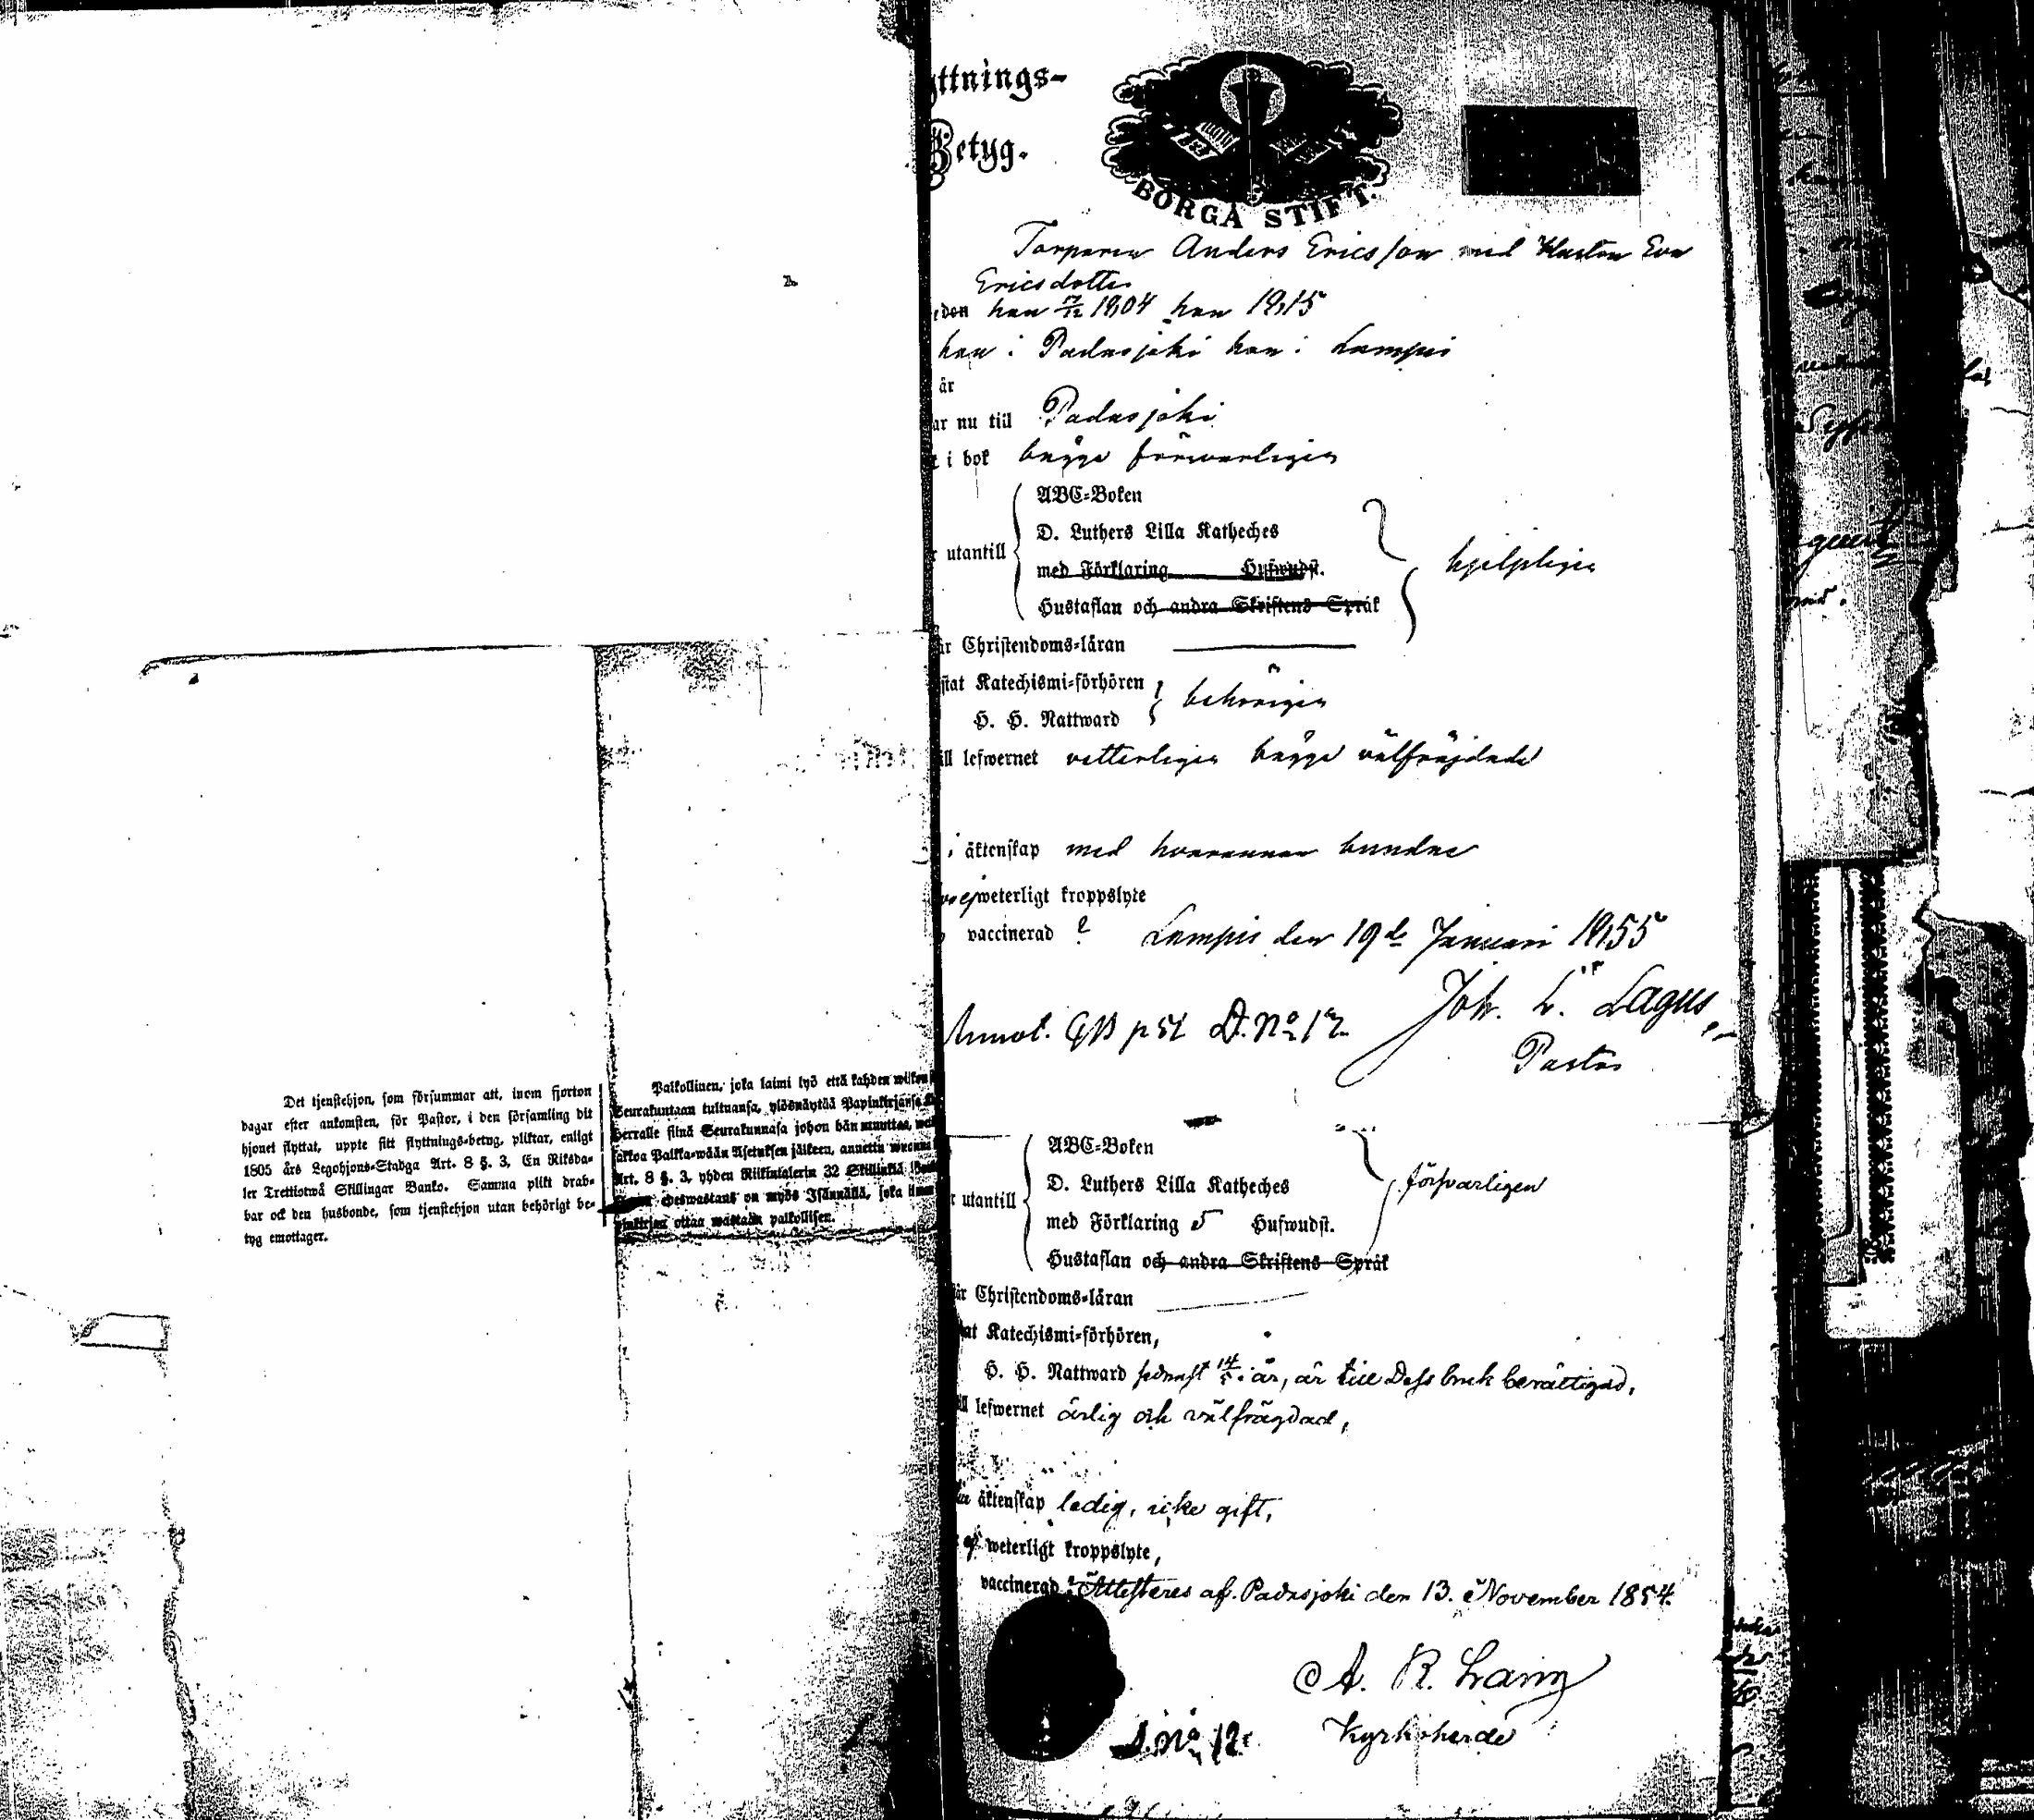 Det tjenstehjon, som försummar att, inom fjorton
dagar efter ankomsten, för Pastor, i den församling dit
hjonet flyttat, uppte sitt flyttnings-betyg, pliktar, enligt
1805 års Legohjons-Stadga Art. 8 §. 3, En Riksda-
ler Trettiotwå Skillingar Banko. Samma plikt drab-
bar ock den husbonde, som tjenstehjon utan behörigt be-
tyg emottager.
Palkollinen, joka laimi lyö että kahden wiikon
Seurakuntaan tultuansa, ylösnäyttää Papinkirjansa
Herralle siinä Seurakunnasa johon hän muuttaa,
sakkoa Palkka-wään Asetuksen jälkeen, annettu wuonna
Art. 8 §. 3, yhden Riikintalerin 32 Skillinkiä
edeswastaus on myös Isännällä, joka ilman
pinkirjaa ottaa wastaan palkollisen.
ttnings-
Betyg.
BORGÅ STIFT.
Torparen Anders Ericsson med Hustru Eva
Ericsdotter
don han 7/12 1804 hon 1815
han i Padasjoki hon i Lampis
är
ar nu till Padasjoki
i bok bägge försvarligen
ABC-Boken
D. Luthers Lilla Katheches
utantill
med Förklaring Hufwudst.
hjelpligen
Hustaflan och andra Skriftens Språk
är Christendoms-läran
stat Katechismi-förhören
H. H. Nattward
behörigen
ill lefwernet vetterligen bägge välfräjdade
i äktenskap med hvarannan bundne
ej weterligt kroppslyte
vaccinerad ? Lampis den 19de Januari 1855
Joh. L. Lagus
Annot. D. No 12
Pastor
ABC-Boken
D. Luthers Lilla Katheches
utantill
försvarligen
med Förklaring Hufwudst.
Hustaflan och andra Skriftens Språk
är Christendoms-läran
at Katechismi-förhören,
H. H. Nattward senast 14/5 i år, är till Dess bruk berättigad,
ill lefwernet ärlig och välfrägdad,
äktenskap ledig, icke gift,
ej weterligt kroppslyte,
vaccinerad. Attesteres af. Padasjoki den 13. November 1854.
A. R.
No 12. Kyrkoherde